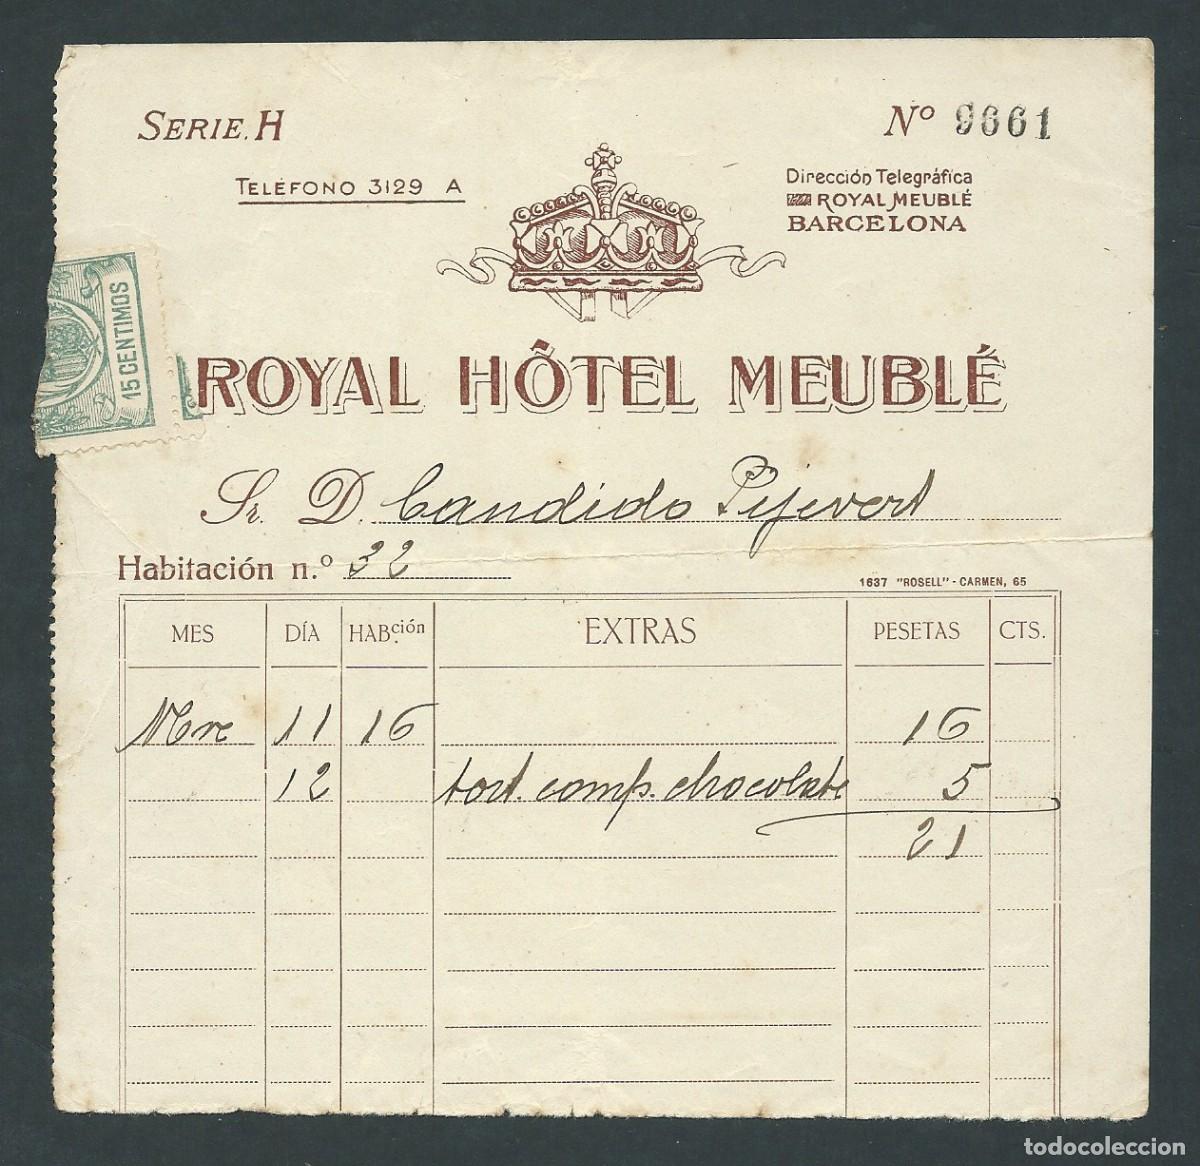 SERIE. H
Nº 9661
TELÉFONO 3129 A
Dirección Telegráfica
ROYAL MEUBLÉ
BARCELONA
15 CENTIMOS
ROYAL HÔTEL MEUBLÉ
Sr. D. Candido Pijevert
Habitación n.º 32
1637 "ROSELL" - CARMEN, 65
MES DÍA HABción. EXTRAS PESETAS CTS.
Nbre 11 16 16
12 tort. comp. chocolate 5
21
todocoleccion